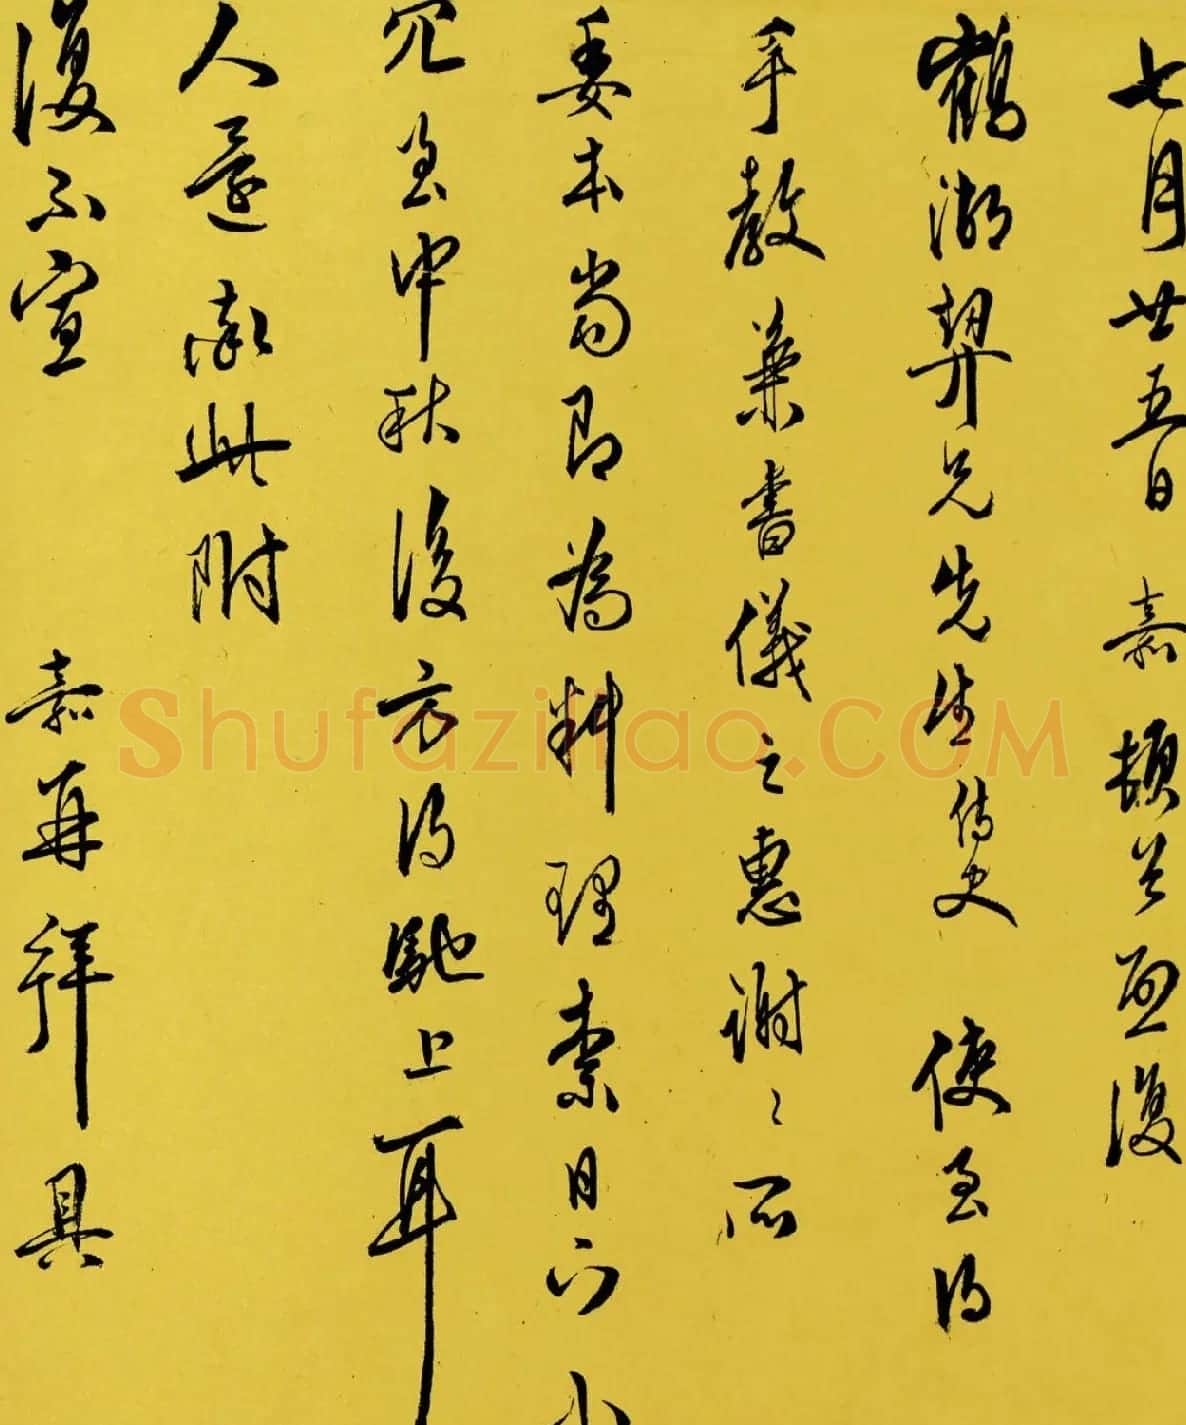 七月廿五日 嘉頓首再復
鶴湖契兄先生侍史 使至得
手教兼書儀之惠謝〻所
委本當即為料理索日下小
冗至中秋後方得馳上耳
人還 此附
復不宣 嘉再拜具
Shufaziliao.COM